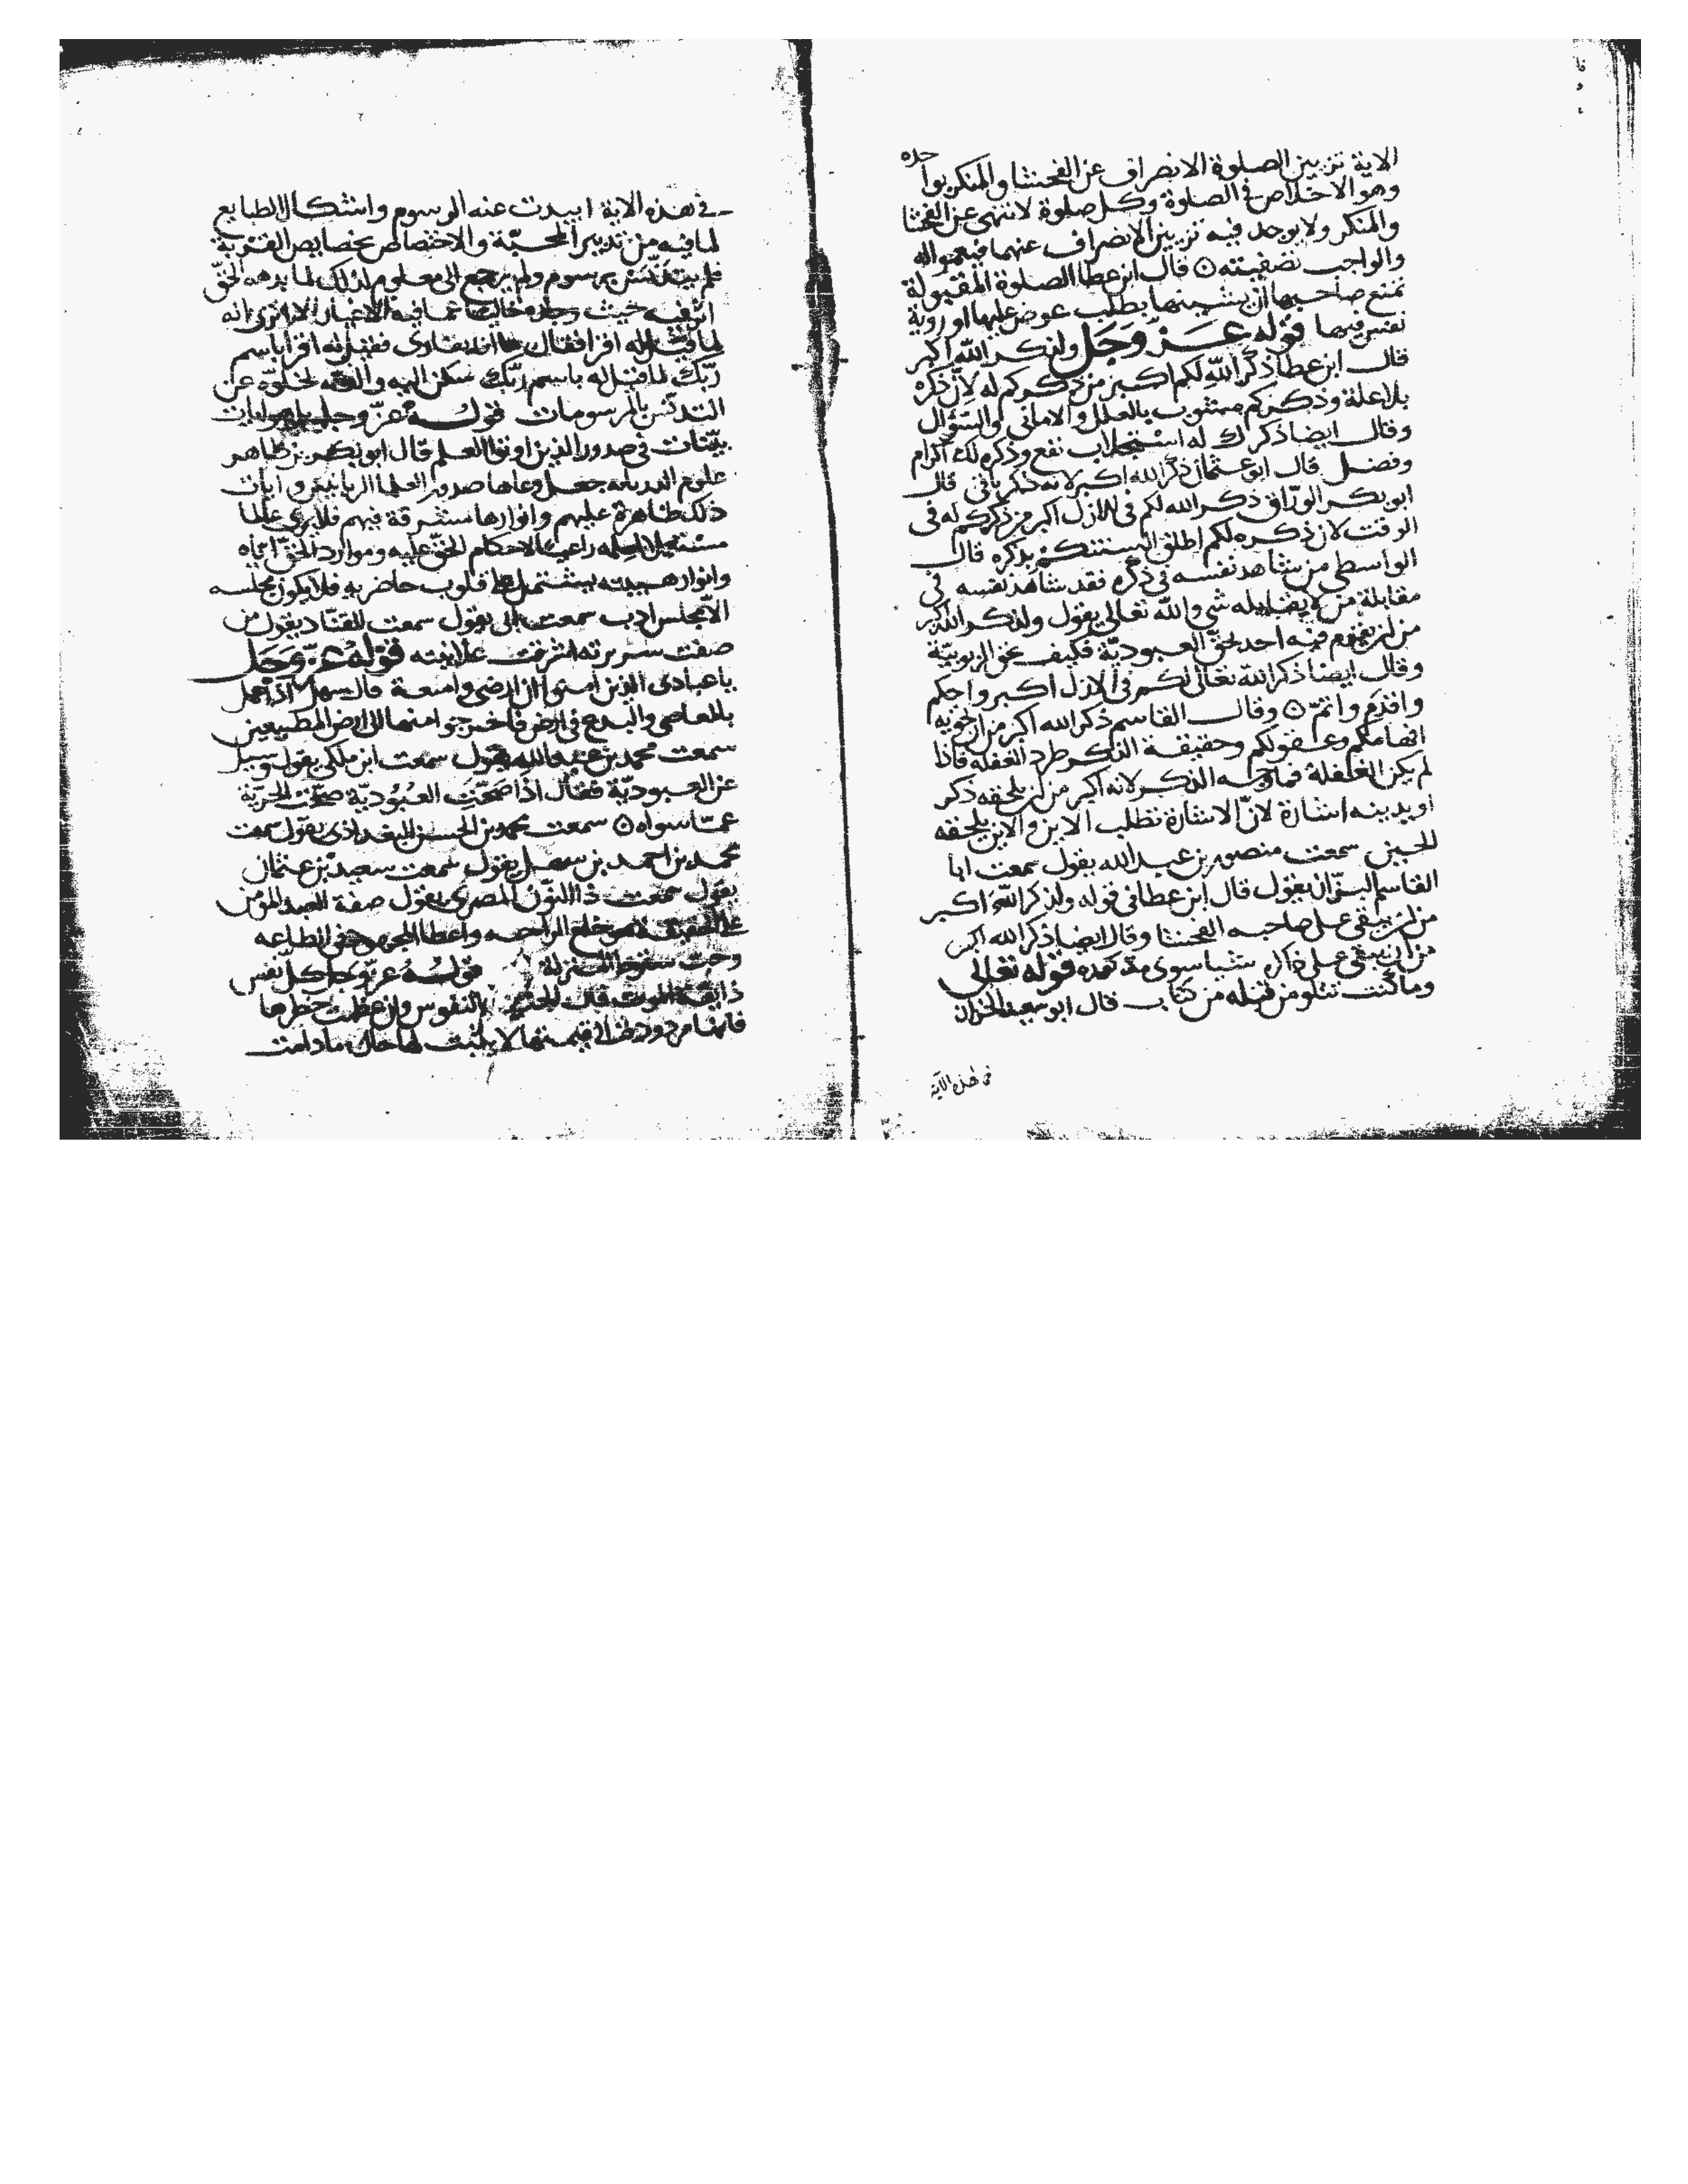 الاية تزيين الصلوة الانصراف عن الفحشا والمنكر بواحده
وهو الاخلاص في الصلوة وكل صلوة لا تنهى عن الفحشا
والمنكر ولا يوجد فيه تزيين الانصراف عنهما فيهو اله
والواجب تصفيته ۞ قال ابن عطا الصلوة المقبولة
تمنع صاحبها ان يشينها بطلب عوض عليها او روية
نفس فيها قوله عز وجل ولذكر الله اكبر
قال ابن عطا ذكر الله لكم اكبر من ذكركم له لان ذكره
بلا علة وذكركم مشوب بالعلل والاماني والسؤال
وقال ايضا ذكرك له استجلاب نفع وذكره لك اكرام
وفضل قال ابو عثمان ذكر الله اكبر لانه ذكر باقي قال
ابو بكر الوراق ذكر الله لكم في الازل اكبر من ذكركم له في
الوقت لان ذكره لكم اطلق السنتكم بذكره قال
الواسطي من شاهد نفسه في ذكره فقد شاهد نفسه في
مقابلة من لا يقابله شي والله تعالى يقول ولذكر الله اكبر
من ان يقوم فيه احد بحق العبودية فكيف بحق الربوبية
وقال ايضا ذكر الله تعالى لكم في الازل اكبر واحكم
واقدم واتم ۞ وقال القاسم ذكر الله اكبر من ان تحويه
افهامكم وعقولكم وحقيقة الذكر طرد الغفله فاذا
لم يكن الغفلة فما وجه الذكر لانه اكبر من ان يلحقه ذكر
او يدينه اشارة لان الاشارة تطلب الاين والاين يلحقه
الحين سمعت منصور بن عبد الله يقول سمعت ابا
القاسم البزاز يقول قال ابن عطا في قوله ولذكر الله اكبر
من ان يبقى على صاحبه الفحشا وقال ايضا ذكر الله اكبر
من ان يبقى على ذاكره شيا سوى مذكوره قوله تعالى
وما كنت تتلو من قبله من كتاب قال ابو سعيد الخراز
في هذه الآية
في هذه الاية ابيدت عنه الرسوم واشكال الطبايع
لما فيه من تدبير المحبة والاختصاص بخصايص القربة
فلم يتدنس برسوم ولم يرجع الى معلوم لذلك لما بدهه الحق
اثر فيه حيث وجده خاليا عما فيه الاغيار الا ترى انه
لما قيل له اقرا فقال ما انا بقارى فقيل له اقرا باسم
ربك لما قيل له باسم ربك سكن اليه والفه لخلوه عن
التدنس بالمرسومات قوله عز وجل بل هو ايات
بينات في صدور الذين اوتوا العلم قال ابو بكر بن طاهر
علوم جعل وعاها صدور العلما الربانيين و ايات
ذلك ظاهرة عليهم وانوارها مشرقة فيهم فلا يرى عالما
مستعملا لعلمه راعيا لاحكام الحق عليه وموارد الحق اياه
وانوار هيبته يشتمل على قلوب حاضريه فلا يكون مجلسه
الا مجلس ادب سمعت ابي يقول سمعت القناد يقول من
صفت سريرته اشرقت علانيته قوله عز وجل
يا عبادي الذين امنوا ان ارضي واسعة قال سهل اذا عمل
بالمعاصي والبدع في ارض فاخرجوا منها الى ارض المطيعين
سمعت محمد بن عبد الله يقول سمعت ابن ملكي يقول وسيل
عن العبودية فقال اذا صحت العبودية صحت الحرية
عما سواه ۞ سمعت محمد بن الحسن البغداذي يقول سمعت
محمد بن احمد بن سهل يقول سمعت سعيد بن عثمان
يقول سمعت ذا النون المصري يقول صفة العبد المؤمن
على الحقيقة هو خلع الراحه واعطا المجهود في الطاعه
وحب سقوط المنزلة قوله عز وجل كل نفس
ذايقة الموت قال النفوس وان عظمت خطرها
فانها مردودة الى قيمتها لا يثبت لها حال ما دامت